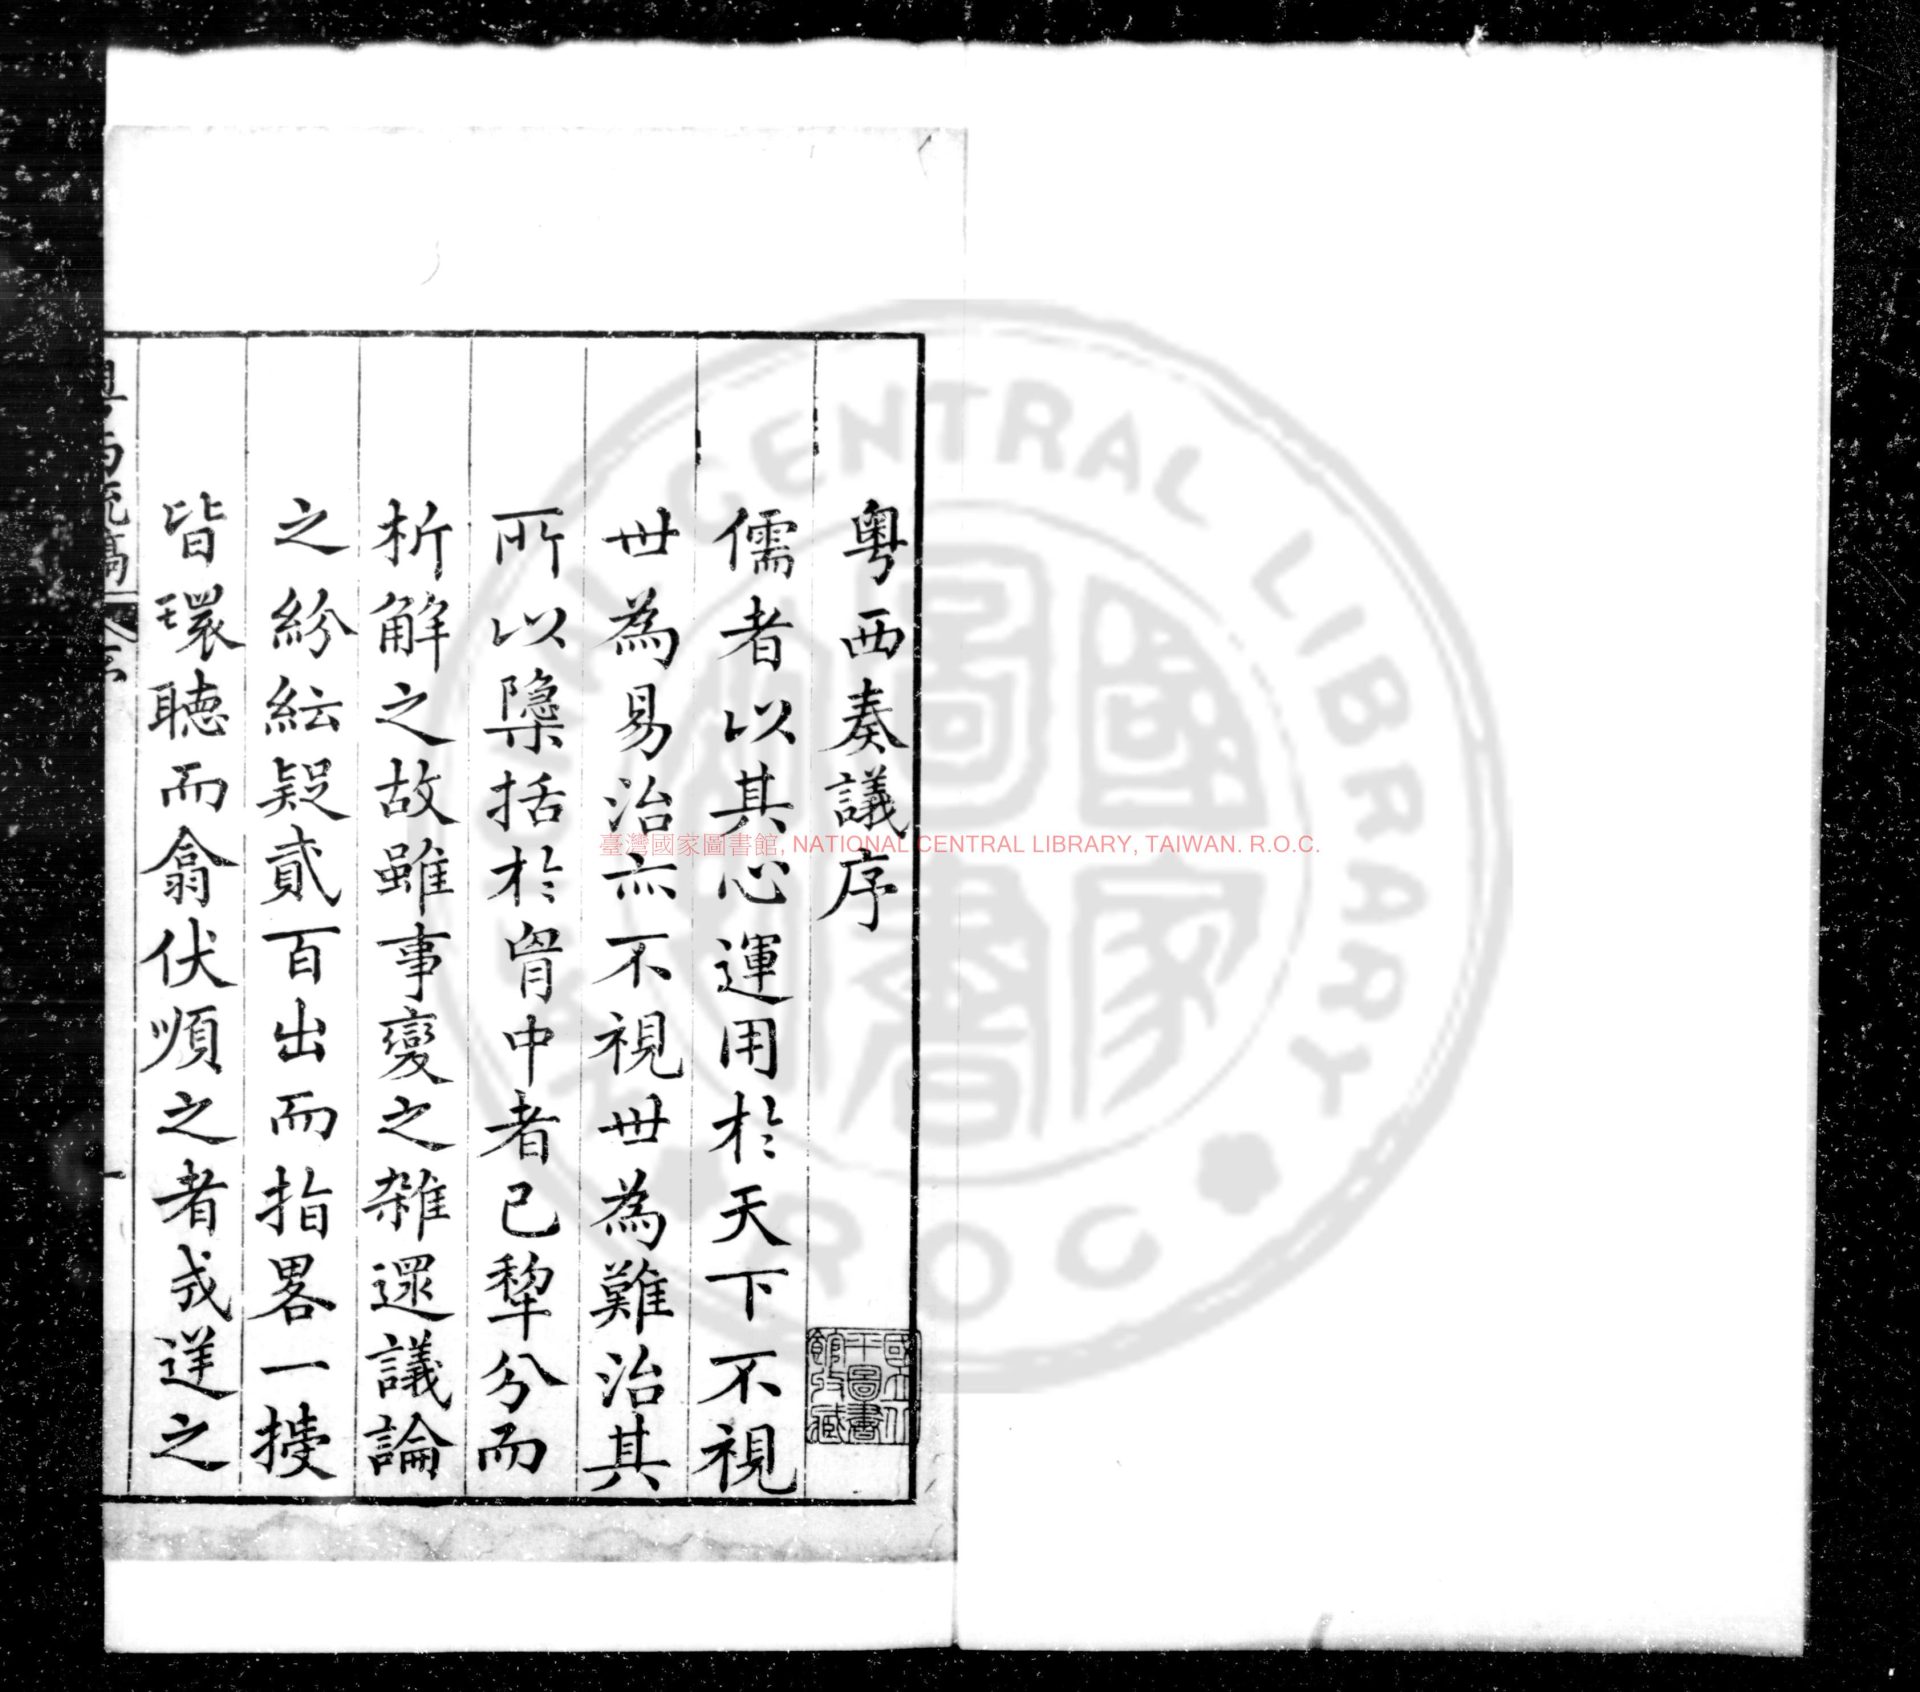 粤西奏議序
儒者以其心運用於天下不視
世為易治亦不視世為難治其
所以隱括於胷中者已犂分而
析解之故雖事變之雜還議論
之紛紜疑貳百出而指畧一㨿
皆環聽而翕伏順之者㦯逆之
粤西疏稿
序
一
國立北平圖書館收藏
臺灣國家圖書館, NATIONAL CENTRAL LIBRARY, TAIWAN. R.O.C.
NATIONAL CENTRAL LIBRARY
R O C
國家圖書